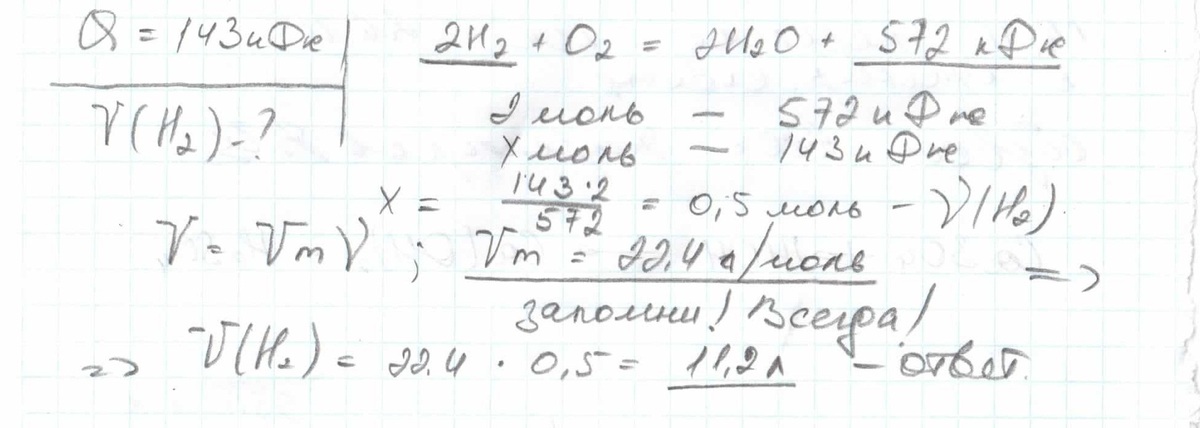 Q = 143 кДж
2H₂ + O₂ = 2H₂O + 572 кДж
V(H₂) - ?
2 моль — 572 кДж
x моль — 143 кДж
x = 143·2/572 = 0,5 моль – ν(H₂).
V = Vm ν ; Vm = 22.4 л/моль =>
запомни! Всегда!
=> V(H₂) = 22.4 · 0,5 = 11,2 л – ответ.